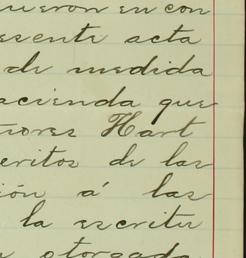 uieron en con
esente acta
de medida
acienda que
ñores Hart
eritos de las
ión á las
la escritu
otorgada